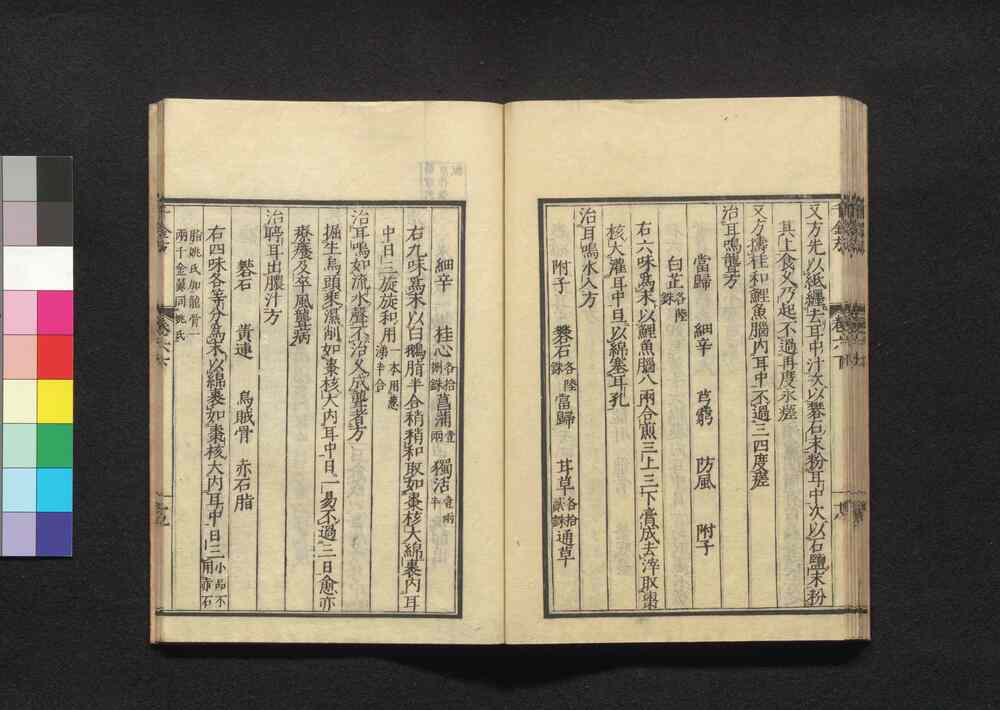 又方先以紙纏去耳中汁次以礬石末粉耳中次以石鹽末粉
其上食久乃起不過再度永瘥
又方擣桂和鯉魚腦內耳中不過三四度瘥
治耳鳴聾方
當歸 細辛 芎藭 防風 附子
白芷各陸銖
右六味爲末以鯉魚腦八兩合煎三上三下膏成去滓取棗
核大灌耳中旦以綿塞耳孔
治耳鳴水入方
附子 礬石各陸銖 當歸 甘草各拾貳銖 通草
細辛 桂心各拾捌銖 菖蒲壹兩 獨活壹兩半
右九味爲末以白鵝脂半合稍稍和取如棗核大綿裹內耳
中日三旋旋和用一本用葱涕半合
治耳鳴如流水聲不治久成聾者方
掘生烏頭乘濕削如棗核大內耳中日一易不過三日愈亦
療癢及卒風聾病
治聤耳出膿汁方
礬石 黃連 烏賊骨 赤石脂
右四味各等分爲末以綿裹如棗核大內耳中日三小品不用赤石
脂姚氏加龍骨一兩千金翼同姚氏